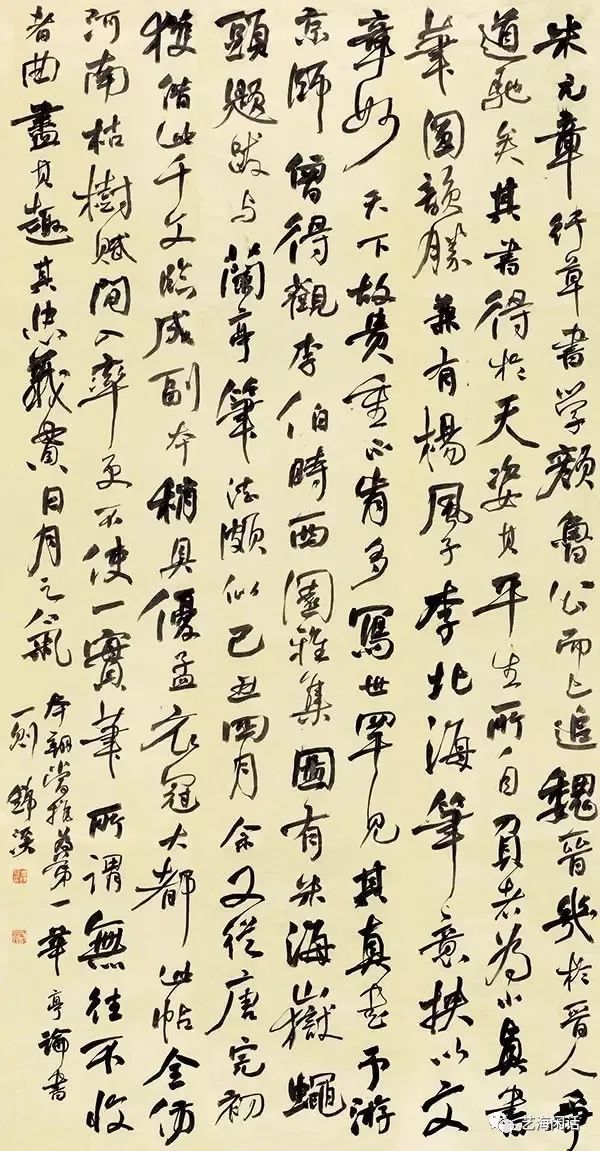 米元章行草書学顏魯公而上追魏晉幾於晉人爭
道馳矣其書得於天姿其平生所自負者为小真書
筆圓韻勝兼有楊風子李北海筆意挾以文
章妙天下故貴重不肯多寫世罕見其真書予游
京師曾得觀李伯時西園雅集圖有米海嶽蠅
頭題跋与蘭亭筆法頗似己丑四月余又從唐完初
獲借此千文臨成副本稍具優孟衣冠大都此帖全仿
河南枯樹賦間入率更不使一實筆所謂無往不收
者曲盡其趣其忠義貫日月之氣
本朝嘗推為第一華亭論書
一則 錦溪
艺海闲话